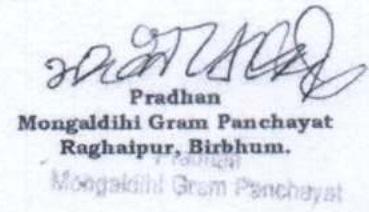 Pradhan
Mongaldihi Gram Panchayat
Raghaipur, Birbhum.
Pradhan
Mongaldihi Gram Panchayat